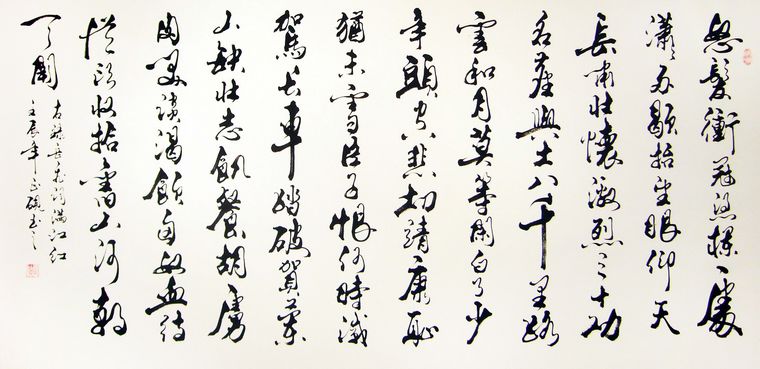 怒髮衝冠憑欄處
瀟々雨歇抬望眼仰天
長嘯壯懷激烈三十功
名塵與土八千里路
雲和月莫等閑白了少
年頭空悲切靖康恥
猶未雪臣子恨何時滅
駕長車踏破賀蘭
山缺壯志飢餐胡虜
肉笑談渴飲匈奴血待
從頭收拾舊山河朝
天闕
右錄岳飛詞滿江紅
壬辰年正碩書之